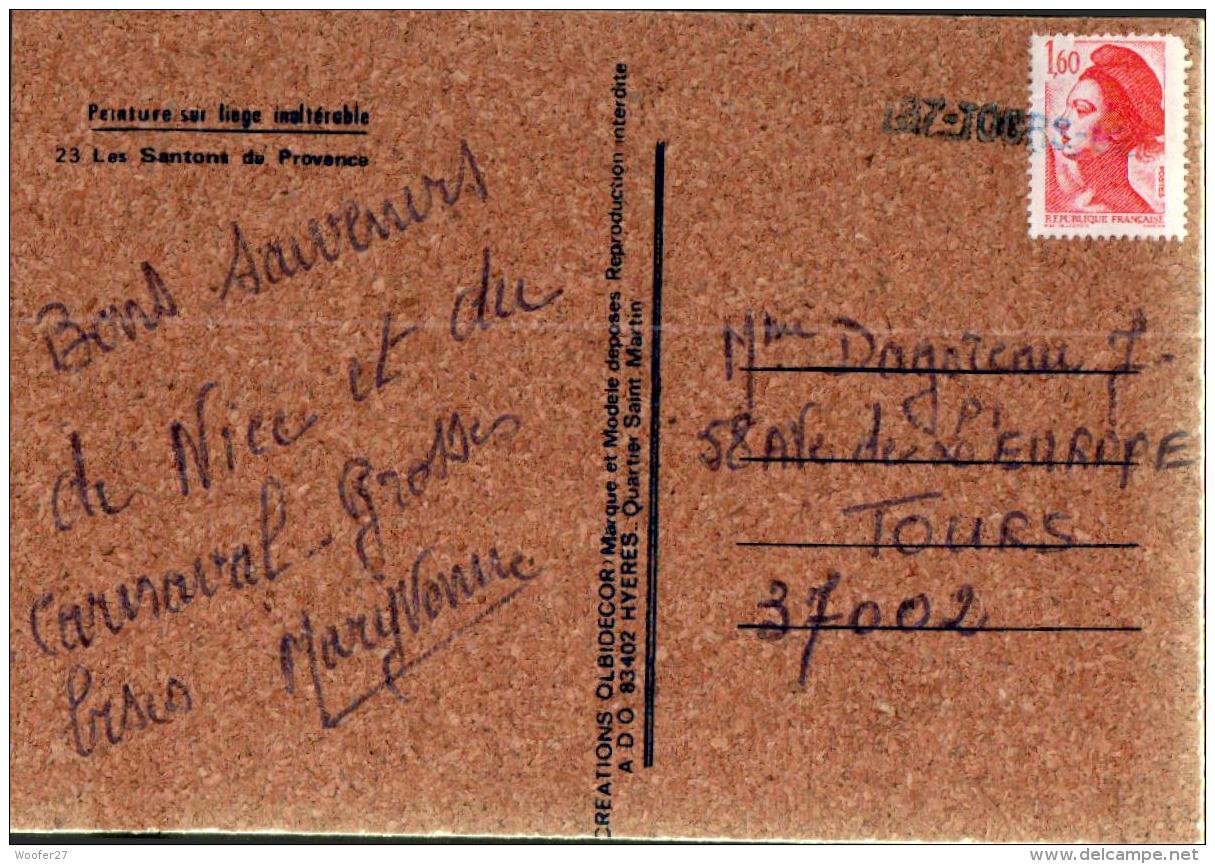 Peinture sur liege inaltérable
23 Les Santons de Provence
Bons Souvenirs
de Nice et du
Carnaval - Grosses
bises MaryVonne
CREATIONS OLBIDECOR Marque et Modele deposes Reproduction interdite
A D O 83402 HYERES.. Quartier Saint Martin
1,60
POSTES
REPUBLIQUE FRANÇAISE
37-TOURS
Mme Dagoreau J.
58 Ave de EUROPE
TOURS
37002
Woofer27
www.delcampe.net